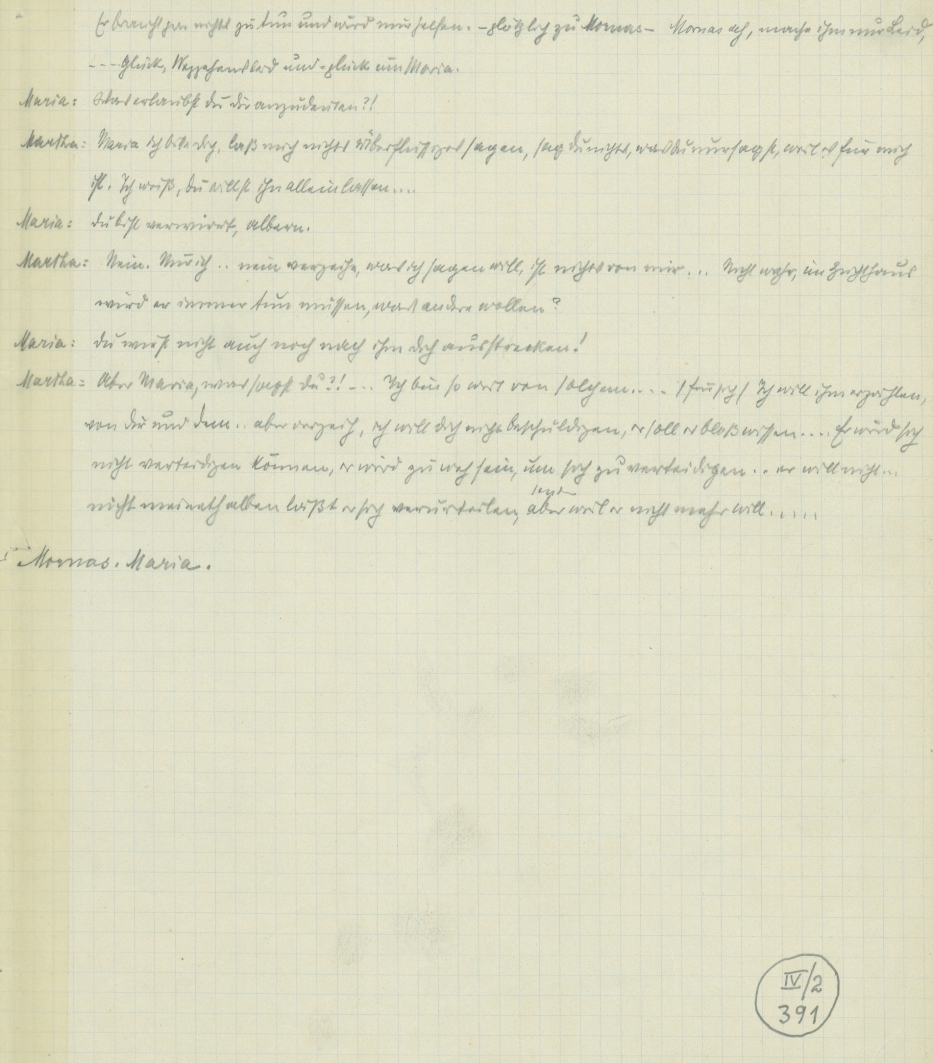 Er braucht gar nichts zu tun und wird mir helfen. – plötzlich zu Mornas – Mornas ach, mache ihm nur Leid,
--- Glück, und -glück um Maria.
Maria: Was erlaubst du dir anzudeuten?!
Martha: Maria ich bitte dich, laß mich nichts Überflüssiges sagen, sag du nichts, was du nur sagst, weil es für mich
ist. Ich weiß, du willst ihn allein lassen....
Maria: du bist verwirrt, albern.
Martha: Nein. Nur ich .. nein verzeihe, was ich sagen will, ist nichts von mir... Nicht wahr, im Zuchthaus
wird er immer tun müssen, was andere wollen?
Maria: du wirst nicht auch noch nach ihm dich ausstrecken!
Martha: Aber Maria, was sagst du?! -.. Ich bin so weit von solchem.... /für sich/ Ich will ihm erzählen,
von dir und dem.. aber verzeih, ich will dich nicht beschuldigen, er soll es bloß wissen.... Er wird sich
nicht verteidigen können, er wird zu weh sein, um sich zu verteidigen .. er will nicht...
nicht meinethalben läßt er sich verurteilen, aber weil er nicht mehr will.....
Mornas. Maria.
IV/2
391